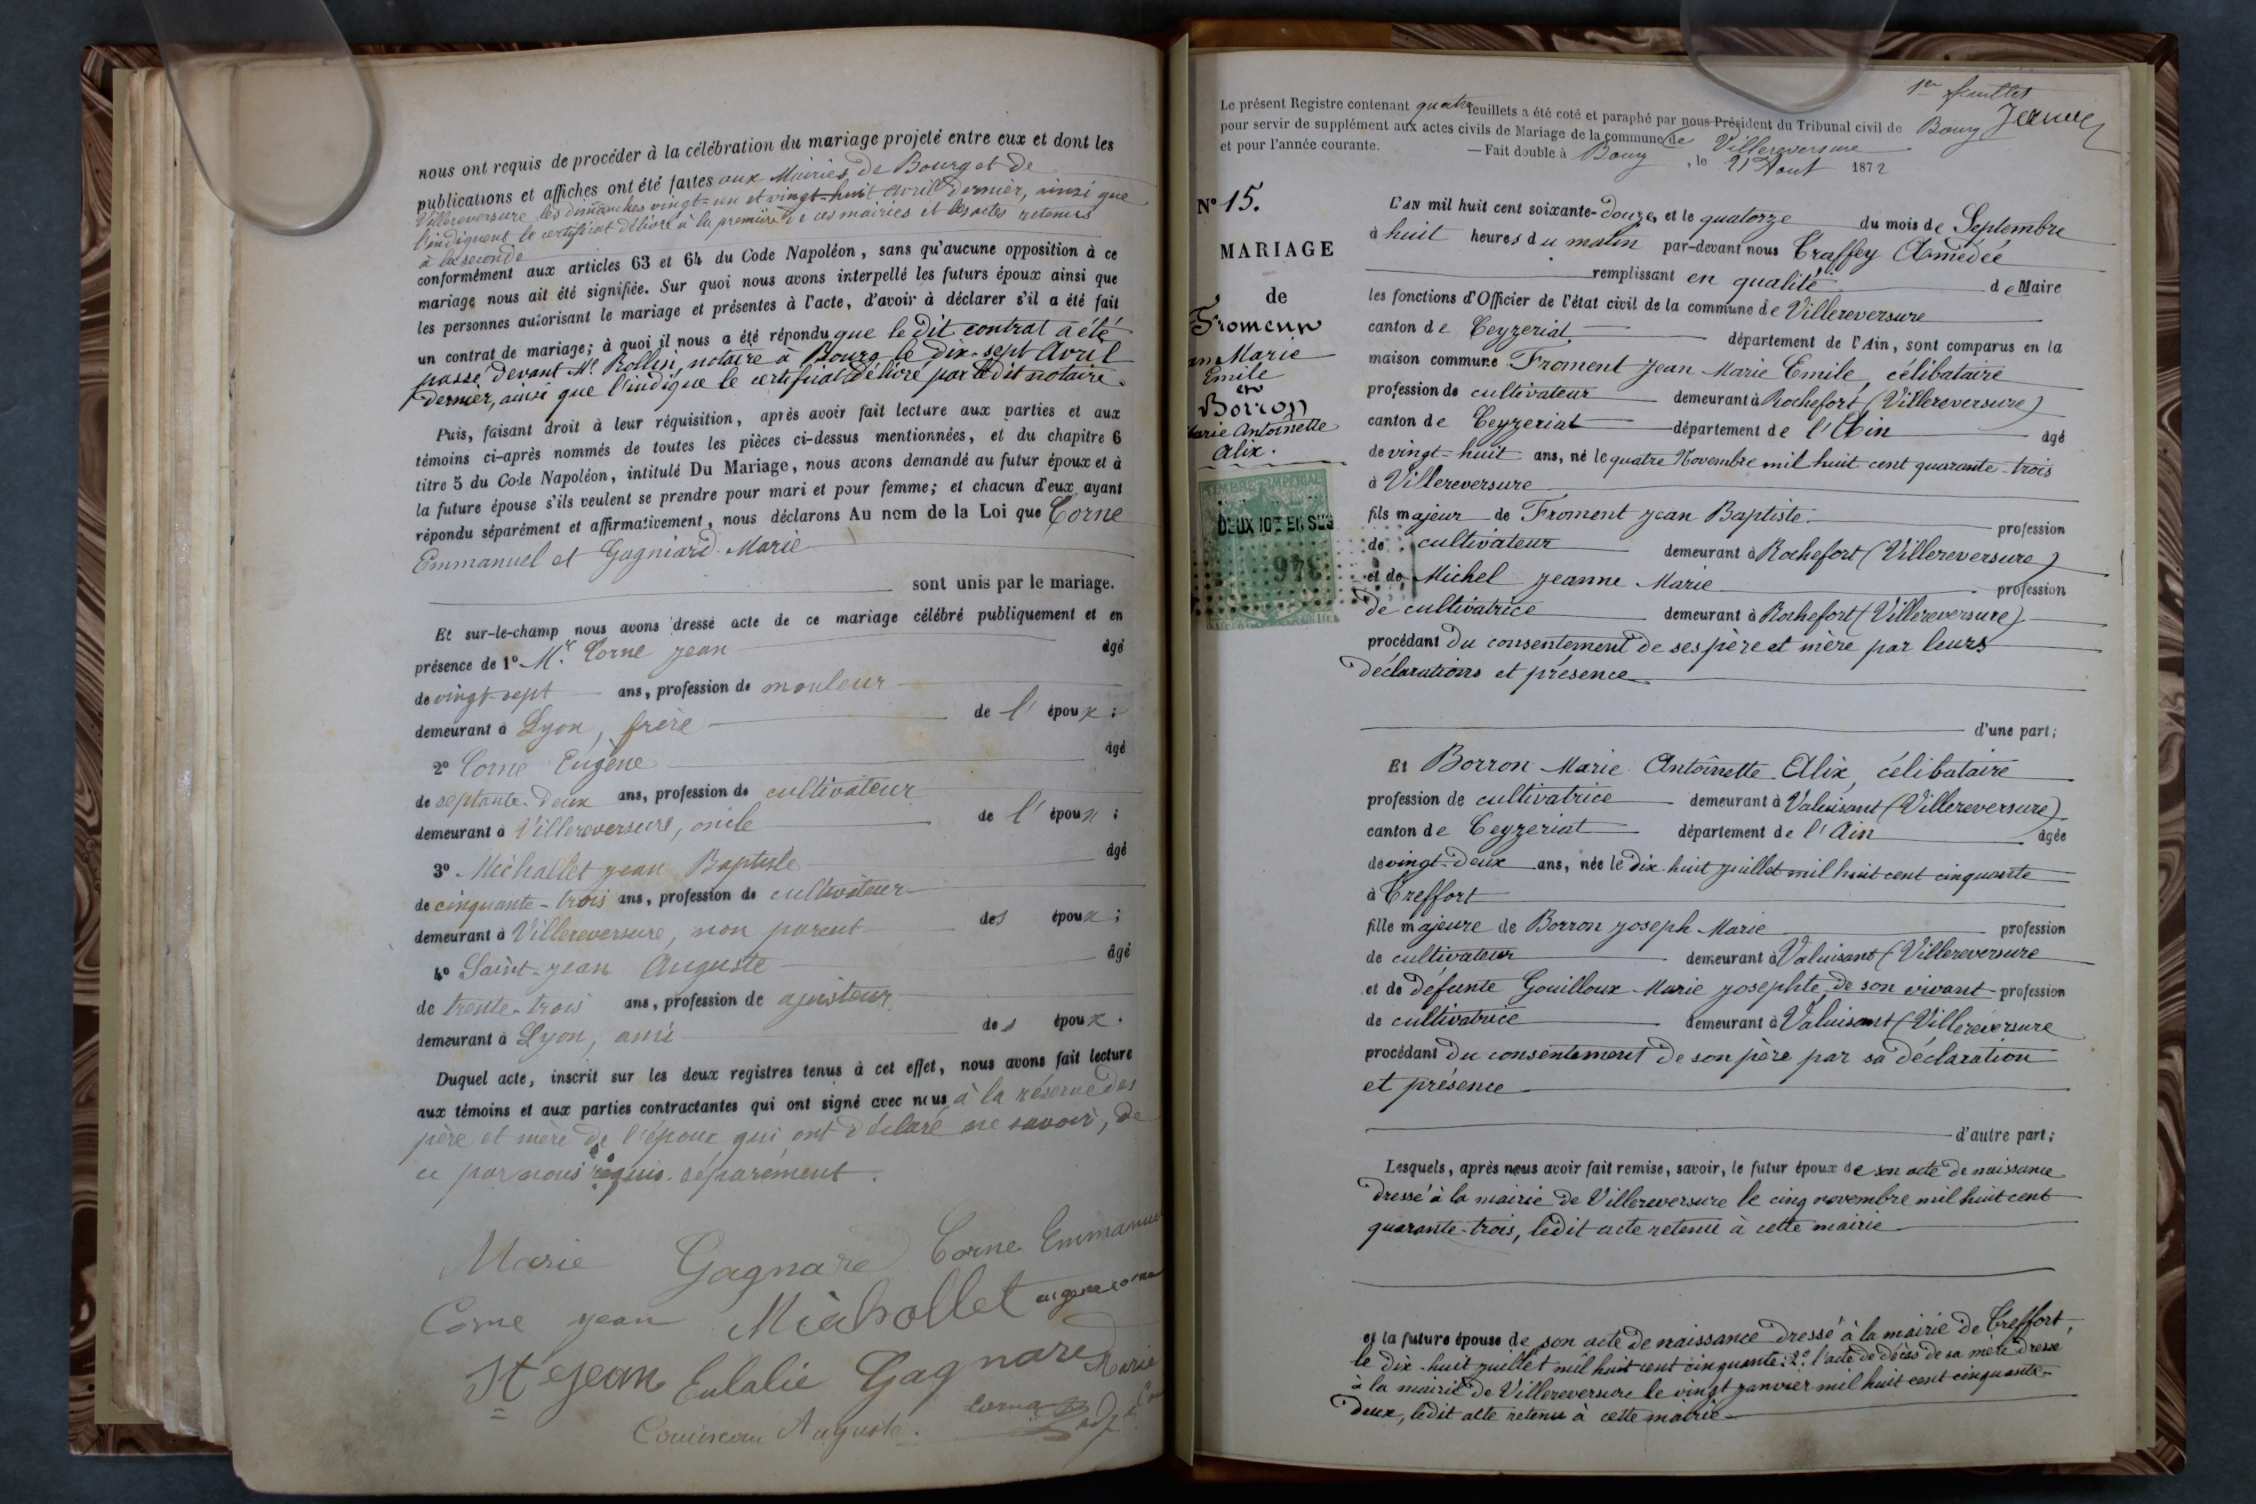 nous ont requis de procéder à la célébration du mariage projeté entre eux et dont les
publications et affiches ont été faites aux Mairies de Bourg et de
Villereversure les dimanches vingt-un et vingt-huit avril dernier, ainsi que
l'indiquent le certificat délivré à la première de ces mairies et les actes retenus
à la seconde
conformément aux articles 63 et 64 du Code Napoléon, sans qu'aucune opposition à ce
mariage nous ait été signifiée. Sur quoi nous avons interpellé les futurs époux ainsi que
les personnes autorisant le mariage et présentes à l'acte, d'avoir à déclarer s'il a été fait
un contrat de mariage; à quoi il nous a été répondu que le dit contrat a été
passé devant Me Rollin, notaire à Bourg le dix-sept Avril
dernier, ainsi que l'indique le certificat délivré par le dit notaire.
Puis, faisant droit à leur réquisition, après avoir fait lecture aux parties et aux
témoins ci-après nommés de toutes les pièces ci-dessus mentionnées, et du chapitre 6
titre 5 du Code Napoléon, intitulé Du Mariage, nous avons demandé au futur époux et à
la future épouse s'ils veulent se prendre pour mari et pour femme; et chacun d'eux ayant
répondu séparément et affirmativement, nous déclarons Au nom de la Loi que Corne
Emmanuel et Gagniard Marie
sont unis par le mariage.
Et sur-le-champ nous avons dressé acte de ce mariage célébré publiquement et en
présence de 1° Mr. Corne Jean âgé
de vingt-sept ans, profession de mouleur
demeurant à Lyon, frère de l'époux;
2° Corne Eugène âgé
de septante-deux ans, profession de cultivateur
demeurant à Villereversure, oncle de l'époux;
3° Michallet Jean Baptiste âgé
de cinquante-trois ans, profession de cultivateur
demeurant à Villereversure, non parent des époux;
4° Saint-Jean Auguste âgé
de trente-trois ans, profession de ajusteur
demeurant à Lyon, ami des époux.
Duquel acte, inscrit sur les deux registres tenus à cet effet, nous avons fait lecture
aux témoins et aux parties contractantes qui ont signé avec nous à la réserve des
père et mère de l'époux qui ont déclaré ne savoir, de
ce par nous requis séparément.
Marie Gagnard Corne Emmanuel
Corne Jean Michallet eugene corne
St Jean Eulalie Gagnard Marie
Corne
Auguste.
1er feuillet
Le présent Registre contenant quatre feuillets a été coté et paraphé par nous Président du Tribunal civil de Bourg
pour servir de supplément aux actes civils de Mariage de la commune de Villereversure
et pour l'année courante. — Fait double à Bourg, le 21 Aout 1872
N° 15.
MARIAGE
de
Froment
Marie
Emile
et
Borron
Marie Antoinette
Alix.
TIMBRE IMPÉRIAL
DEUX 10es EN SUS
346
L'AN mil huit cent soixante-douze, et le quatorze du mois de Septembre
à huit heures du matin par-devant nous Traffey Amédée
remplissant en qualité de Maire
les fonctions d'Officier de l'état civil de la commune de Villereversure
canton de Ceyzeriat département de l'Ain, sont comparus en la
maison commune Froment Jean Marie Emile, célibataire
profession de cultivateur demeurant à Rochefort (Villereversure)
canton de Ceyzeriat département de l'Ain âgé
de vingt-huit ans, né le quatre Novembre mil huit cent quarante-trois
à Villereversure
fils majeur de Froment Jean Baptiste profession
de cultivateur demeurant à Rochefort (Villereversure)
et de Michel Jeanne Marie profession
de cultivatrice demeurant à Rochefort (Villereversure)
procédant du consentement de ses père et mère par leurs
déclarations et présence
d'une part;
Et Borron Marie Antoînette Alix, célibataire
profession de cultivatrice demeurant à Valuisant (Villereversure)
canton de Ceyzeriat département de l'Ain âgée
de vingt-deux ans, née le dix-huit juillet mil huit cent cinquante
à Treffort
fille majeure de Borron Joseph Marie profession
de cultivateur demeurant à Valuisant (Villereversure
et de défunte Gouilloux Marie Josephte de son vivant profession
de cultivatrice demeurant à Valuisant (Villereversure
procédant du consentement de son père par sa déclaration
et présence
d'autre part;
Lesquels, après nous avoir fait remise, savoir, le futur époux de son acte de naissance
dressé à la mairie de Villereversure le cinq novembre mil huit cent
quarante-trois, ledit acte retenu à cette mairie
et la future épouse de son acte de naissance dressé à la mairie de Treffort,
le dix-huit juillet mil huit cent cinquante: 2° l'acte de décès de sa mère dressé
à la mairie de Villereversure le vingt janvier mil huit cent cinquante-
deux, ledit acte retenu à cette mairie